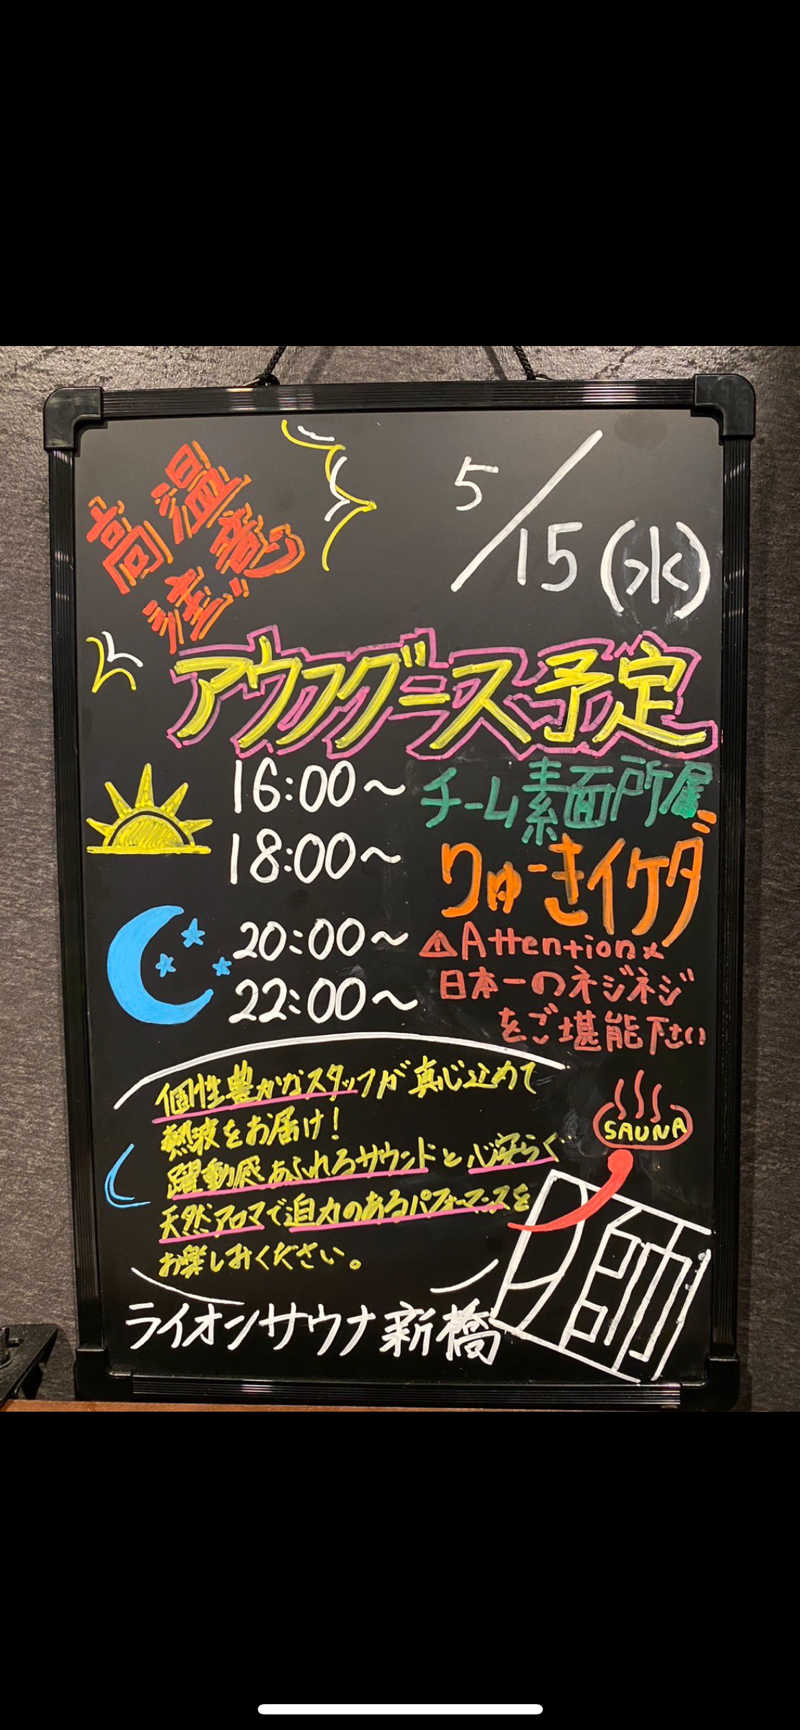 高温
注意
5/15(水)
アウフグース予定
16:00〜
チーム素面所属
18:00〜
りゅーきイケダ
20:00〜
⚠Attention
22:00〜
日本一のネジネジ
をご堪能下さい
個性豊かなスタッフが真心込めて
熱波をお届け!
躍動感あふれるサウンドと心安らぐ
天然アロマで迫力のあるパフォーマンスを
お楽しみください。
SAUNA
ライオンサウナ新橋